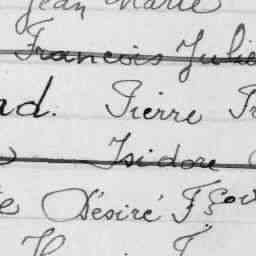 Jean Marie
Francois Julie
ad. Pierre Fr
Isidore
e Désiré Fçov